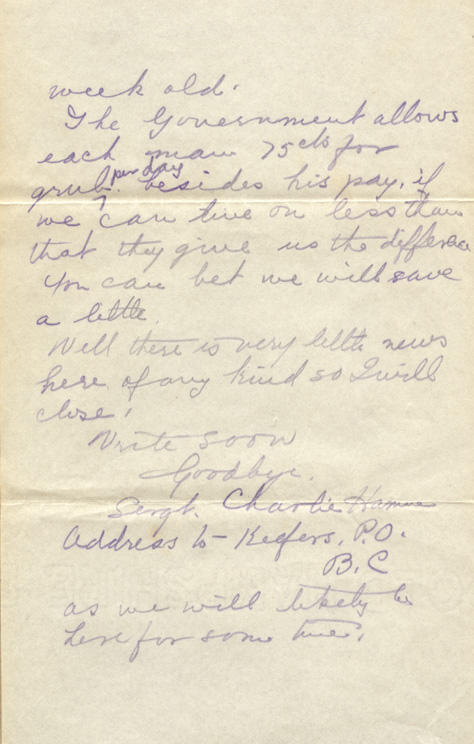 week old.
The Government allows
each man 75cts for
grub per day besides his pay, if
we can live on less than
that they give us the difference
You can bet we will save
a little.
Well there is very little news
here of any kind so I will
close.
Write soon
Goodbye.
Sergt. Charlie
Address to - Keefers, P.O.
B.C
as we will likely be
here for some time.